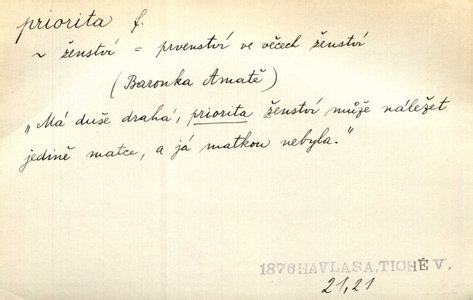 priorita f.
~ ženství = prvenství ve věcech ženství
(Baronka Amatě)
„Má duše drahá, priorita ženství může náležet
jedině matce, a já matkou nebyla."
1876 HAVLASA, TICHÉ V.
21,21